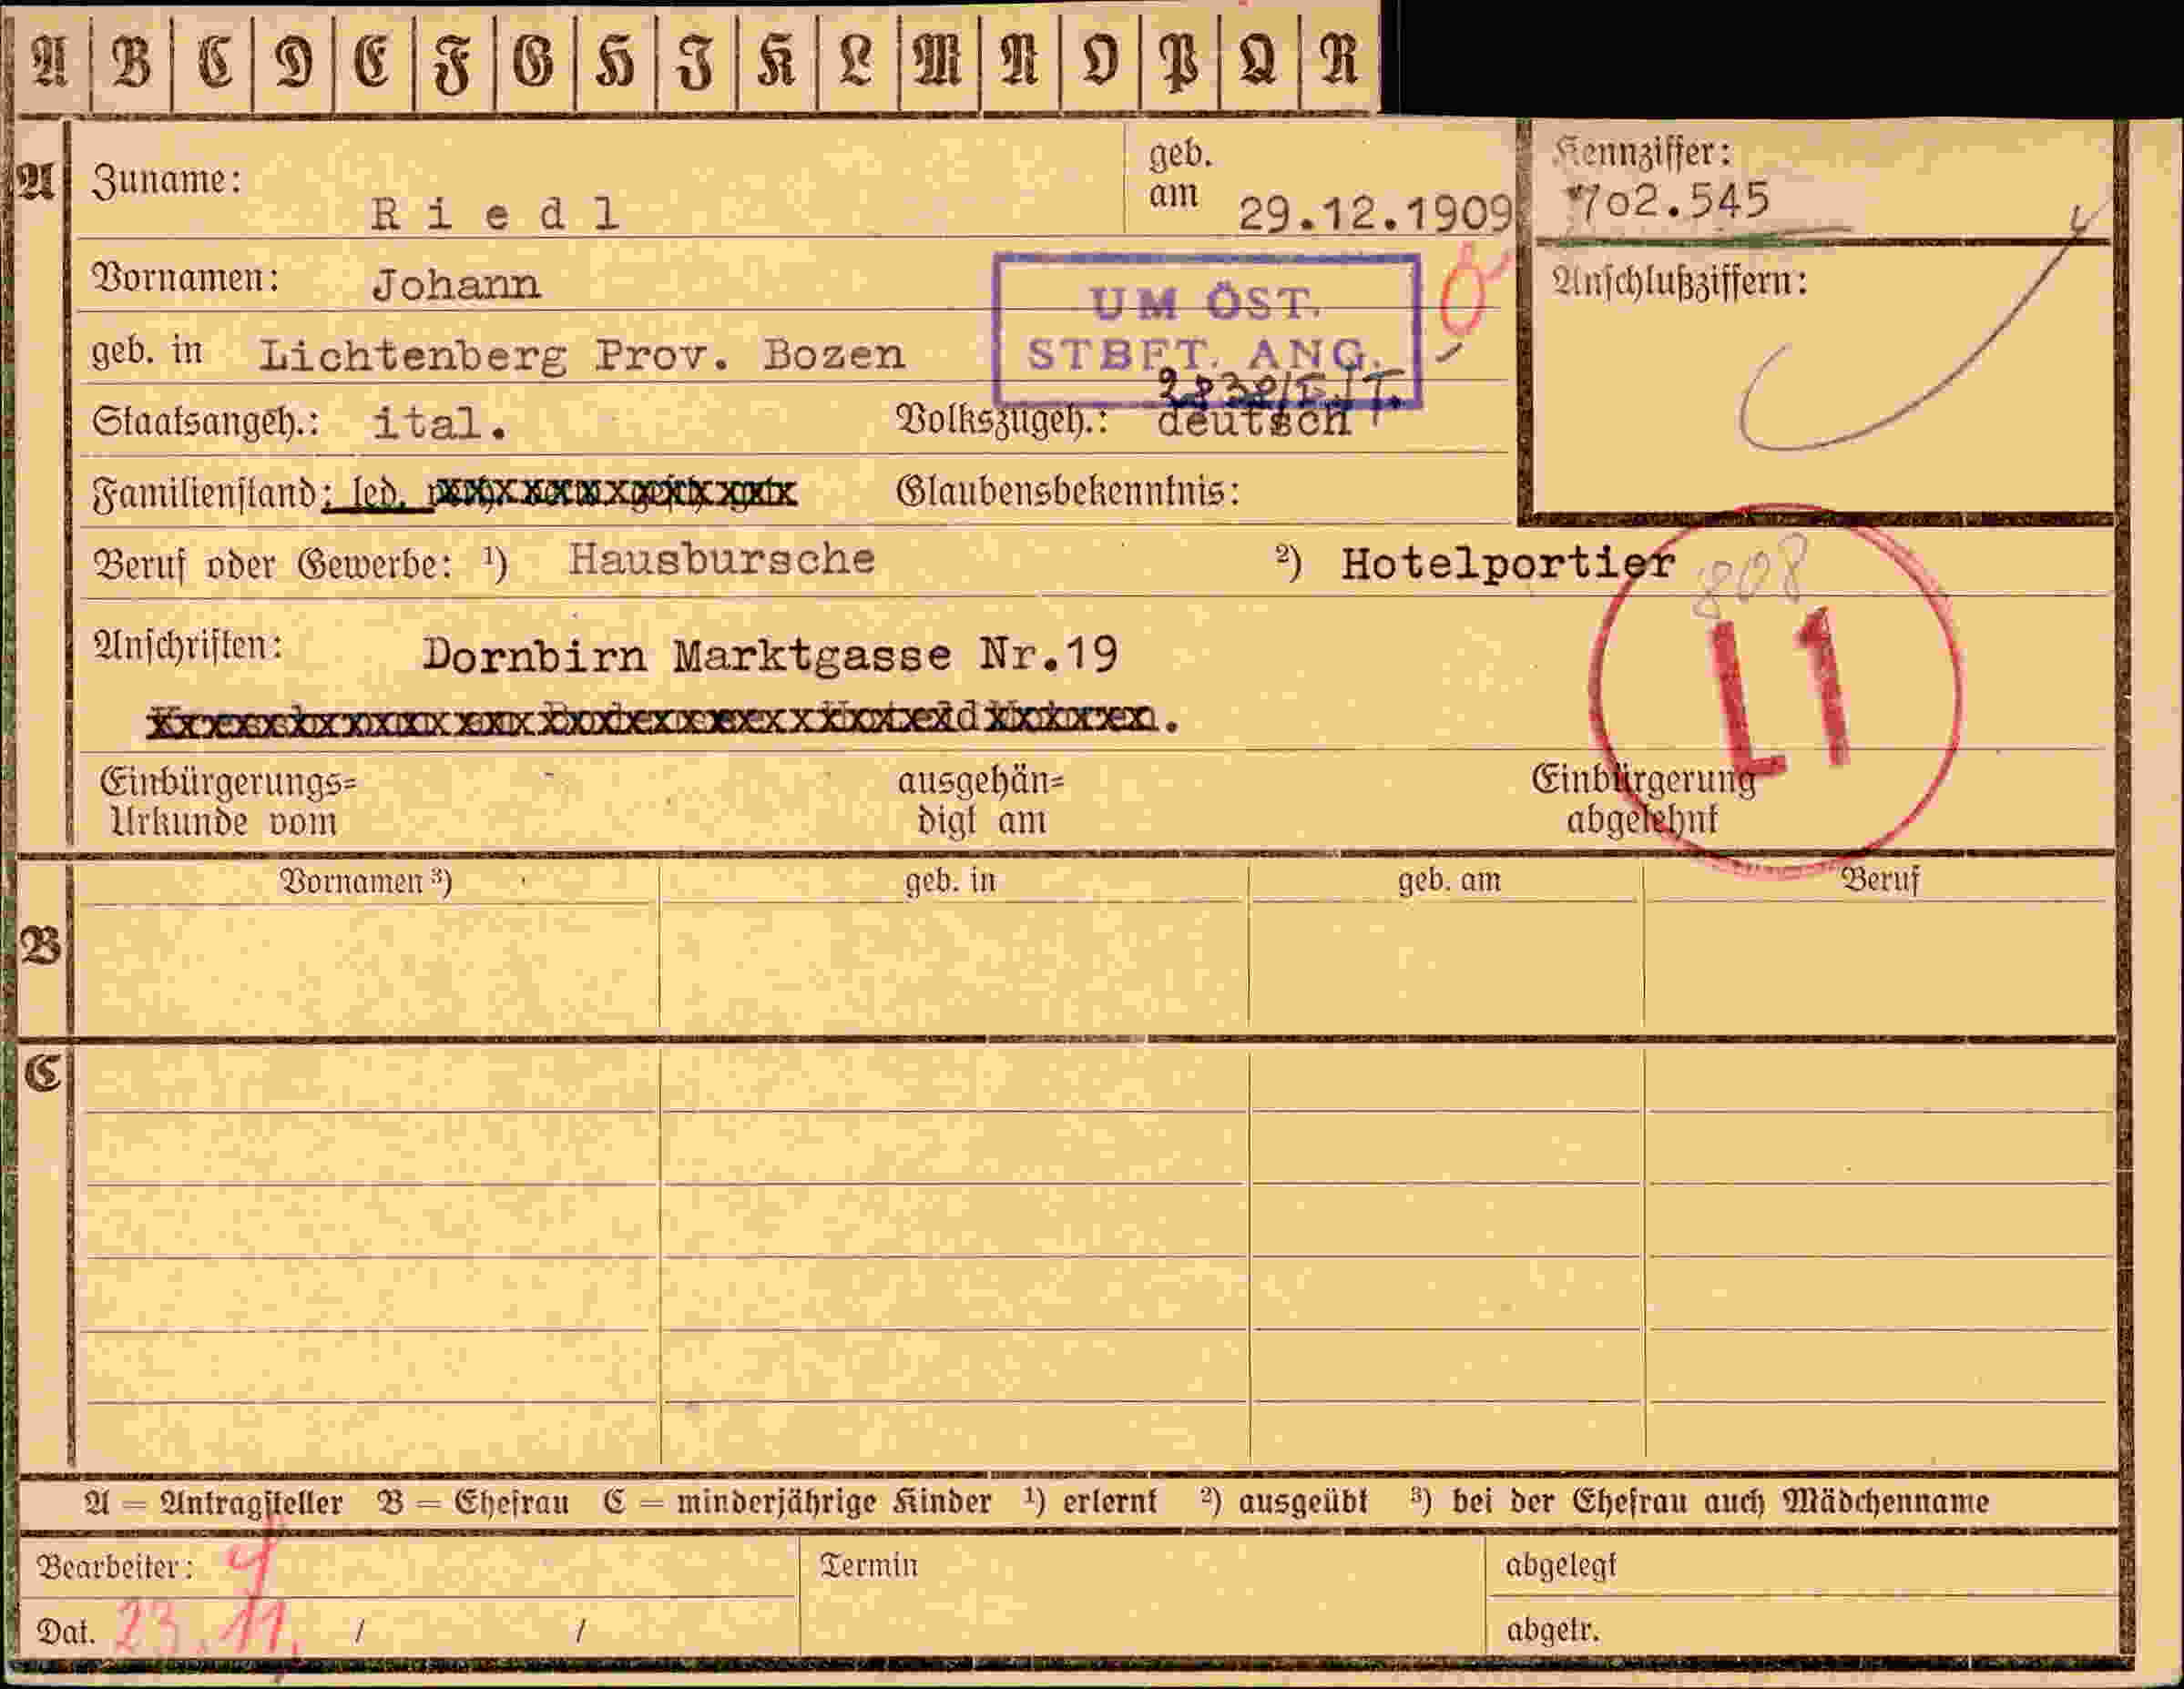 A B C D E F G H J K L M N O P Q R
A
Zuname: Riedl
geb. am 29.12.1909
Kennziffer:
702.545
Vornamen: Johann
UM ÖST.
STBFT. ANG.
Anschlußziffern:
geb. in Lichtenberg Prov. Bozen
Staatsangeh.: ital.
Volkszugeh.: deutsch
Familienstand: led.
Glaubensbekenntnis:
Beruf oder Gewerbe: ¹) Hausbursche ²) Hotelportier
808
L1
Anschriften: Dornbirn Marktgasse Nr.19
Einbürgerungs=
Urkunde vom
ausgehän=
digt am
Einbürgerung
abgelehnt
B
Vornamen ³) geb. in geb. am Beruf
C
A = Antragsteller B = Ehefrau C = minderjährige Kinder ¹) erlernt ²) ausgeübt ³) bei der Ehefrau auch Mädchenname
Bearbeiter:
Termin
abgelegt
Dat. 23.11. / /
abgetr.